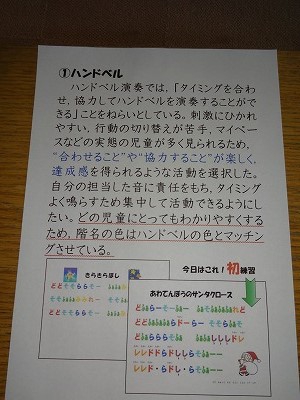 ①ハンドベル
ハンドベル演奏では,「タイミングを合わ
せ,協力してハンドベルを演奏することがで
きる」ことをねらいとしている。刺激にひかれ
やすい,行動の切り替えが苦手,マイペー
スなどの実態の児童が多く見られるため,
“合わせること”や“協力すること”が楽しく,
達成感を得られるような活動を選択した。
自分の担当した音に責任をもち,タイミング
よく鳴らすため集中して活動できるようにし
たい。どの児童にとってもわかりやすくする
ため,階名の色はハンドベルの色とマッチン
グさせている。
きらきらぼし
どどそそららそー
今日はこれ!初練習
あわてんぼうのサンタクロース